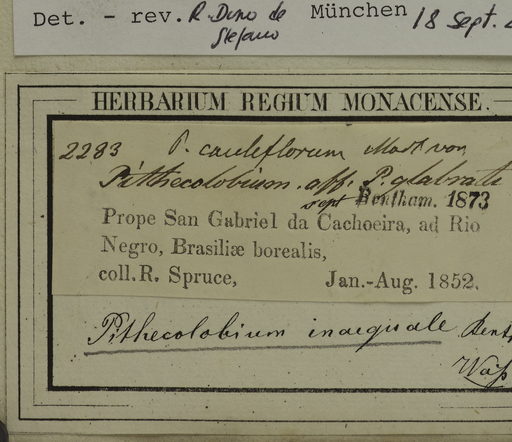 Det. - rev. R. Dino de Stefano München 18 Sept.
HERBARIUM REGIUM MONACENSE.
2283 P. cauliflorum Mart
Pithecolobium. aff. P. glabrat
sept Bentham. 1873
Prope San Gabriel da Cachoeira, ad Rio
Negro, Brasiliæ borealis,
coll. R. Spruce, Jan.-Aug. 1852.
Pithecolobium inaequale Benth